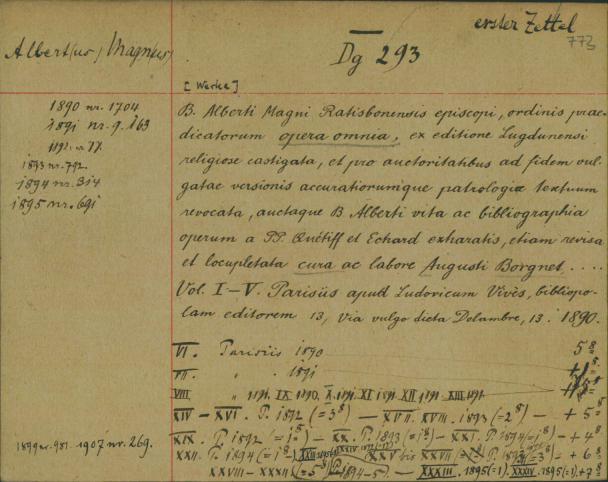 erster Zettel
773
Albert(us) Magnus
Dg 293
[Werke]
1890 nr. 1704
1891 nr. 9. 163
1892. nr 77.
1893 nr. 792.
1894 nr. 314
1895 nr. 691
B. Alberti Magni Ratisbonensis episcopi, ordinis prae-
dicatorum opera omnia, ex editione Lugdunensi
religiose castigata, et pro auctoritatibus ad fidem vul-
gatae versionis accuratiorumque patrologiae textuum
revocata, auctaque B. Alberti vita ac bibliographia
operum a PP. Quétiff et Echard exharatis, etiam revisa
et locupletata cura ac labore Augusti Borgnet. ....
Vol. I–V. Parisiis apud Ludovicum Vivès, bibliopo-
lam editorem 13, via vulgo dicta Delambre, 13. 1890.
VI. Parisiis 1890 5 8
VII. " . 1891
VIII. " 1891. IX 1890. X. 1891 XI 1891. XII 1891. XIII. 1891.
XIV – XVI. P. 1892 (= 3 8) – XVII. XVIII. 1893 (= 2 8) – + 5 8
XIX. P. 1892 (= 1 8) – XX. P. 1893 (= 1 8) – XXI. P. 1894 (= 1 8) – + 4 8
XXII. P. 1894 (= 1 8) XXV bis + 6 8
XXVIII – XXXII (= 5 8) P. 1894–5. — XXXIII. 1895 (= 1) XXXIV. 1895 (= 1) + 7 8
1899 nr. 981. 1907 nr. 269.